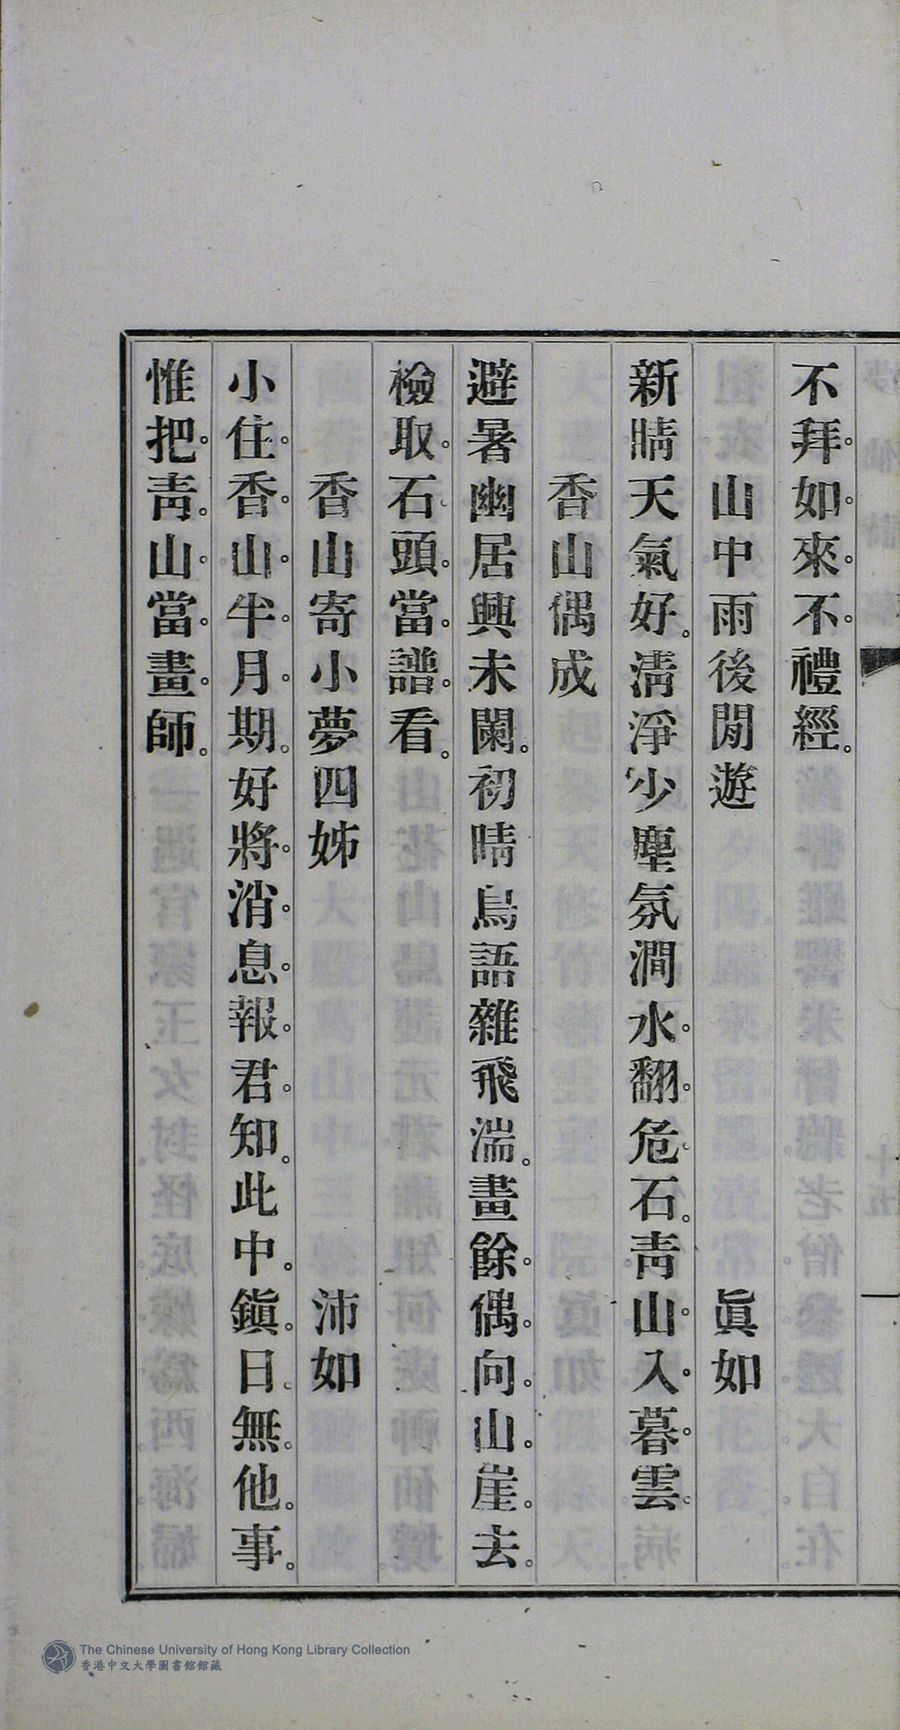 不拜如來不禮經。
山中雨後閒遊　眞如
新晴天氣好。淸淨少塵氛澗水翻危石。靑山入暮雲。
香山偶成
避暑幽居興未闌。初晴鳥語雜飛湍。畫餘偶向山崖去。
檢取石頭當譜看。
香山寄小夢四姊　沛如
小住香山半月期。好將消息報君知。此中鎭日無他事。
惟把靑山當畫師。
The Chinese University of Hong Kong Library Collection
香港中文大學圖書館館藏